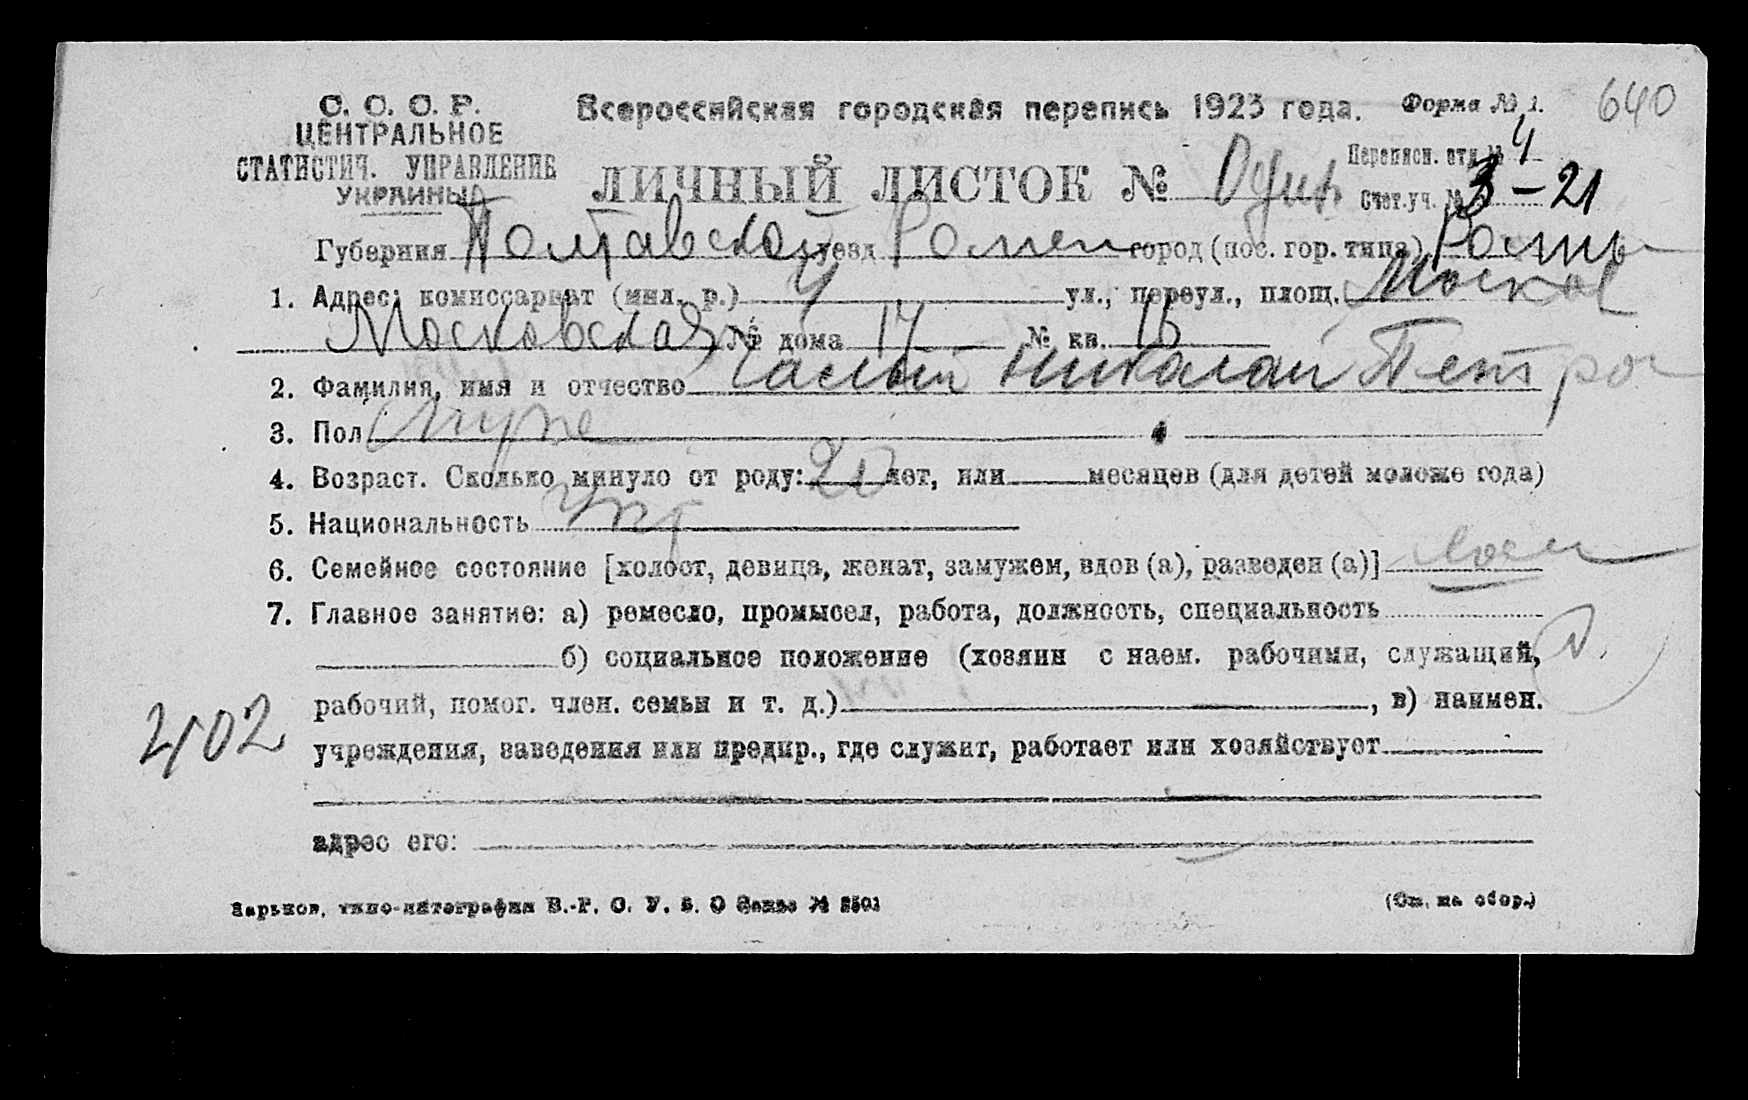 С. С. С. Р.
ЦЕНТРАЛЬНОЕ
СТАТИСТИЧ. УПРАВЛЕНИЕ
УКРАИНЫ
Всероссийская городская перепись 1923 года. Форма № 1. 640
ЛИЧНЫЙ ЛИСТОК № Один
Переписн. отд. № 4
Счет. уч. № 3-21
Губерния Полтавской уезд Ромен город (пос. гор. типа) Ромны
1. Адрес: комиссариат (мил. р.) 4 ул., переул., площ. Москов
Московская № дома 14 № кв.
2. Фамилия, имя и отчество Николай Петров
3. Пол муже
4. Возраст. Сколько минуло от роду: 20 лет, или месяцев (для детей моложе года)
5. Национальность Укр
6. Семейное состояние [холост, девица, женат, замужем, вдов (а), разведен (а)]
7. Главное занятие: а) ремесло, промысел, работа, должность, специальность
б) социальное положение (хозяин с наем. рабочими, служащий,
рабочий, помог. член. семьи и т. д.) , в) наимен.
2402
учреждения, заведения или предпр., где служит, работает или хозяйствует
адрес его:
Харьков, типо-литография В.-Р. С. У. В. О Заказ № 2501
(См. на обор.)